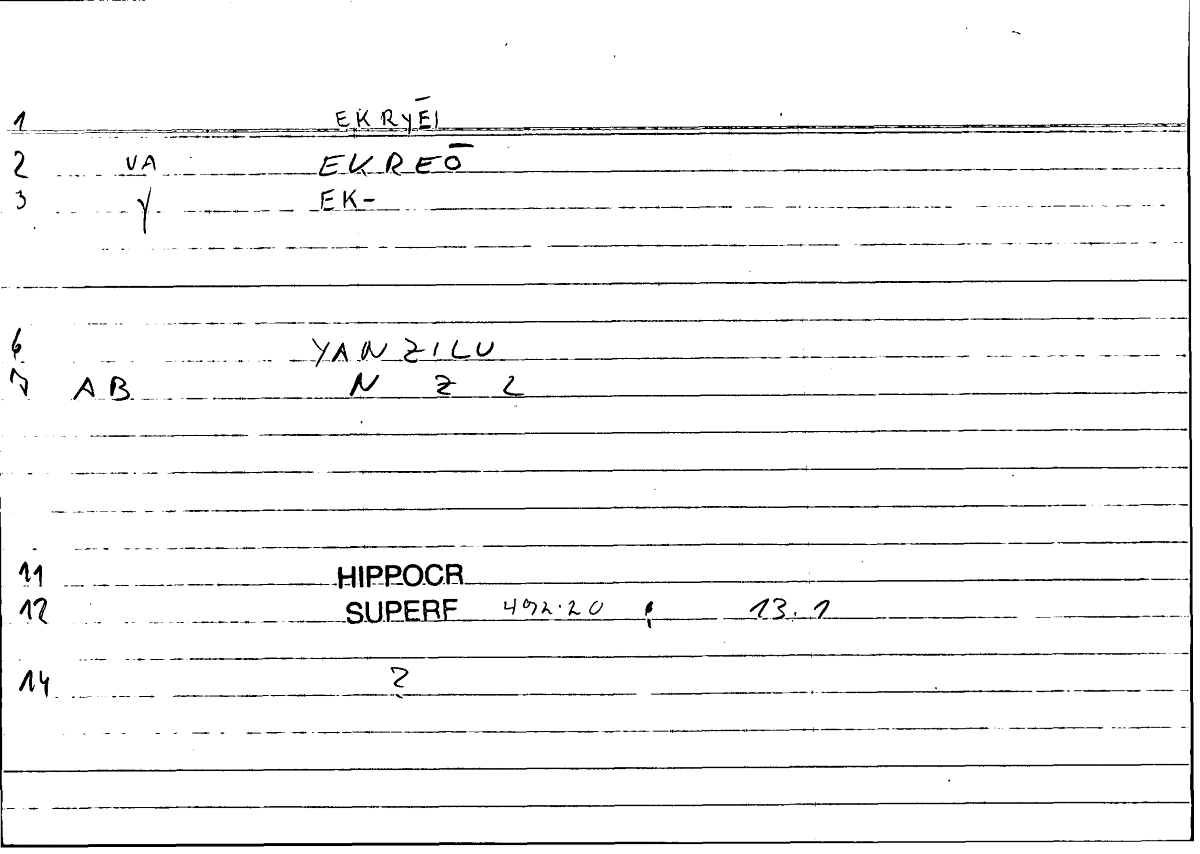 1 EKRYĒI
2 VA EKREŌ
3 Y EK-
6 YANZILU
7 AB N Z L
11 HIPPOCR
12 SUPERF 492.20 ; 13.1
14 2